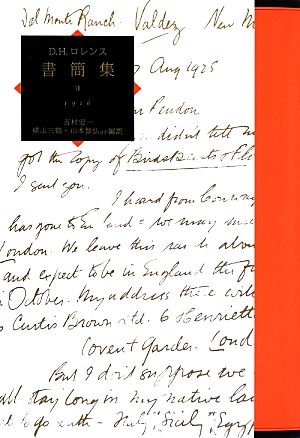 Del Monte Ranch. Valdez New M
Aug 1925
D.H.ロレンス
書簡集
VII
1926
吉村宏一
横山三鶴・山本智弘
didn't tell m
got the copy of Birds Beasts & Fl
I sent you.
I heard from
has gone to
London. We leave this ranch abou
and expect to be in England the fir
October. My address there will
Curtis Brown Ltd. 6 Henriett
Covent Garden. Lond
But I don't suppose we
stay long in my native la
Italy, Sicily, Egyp